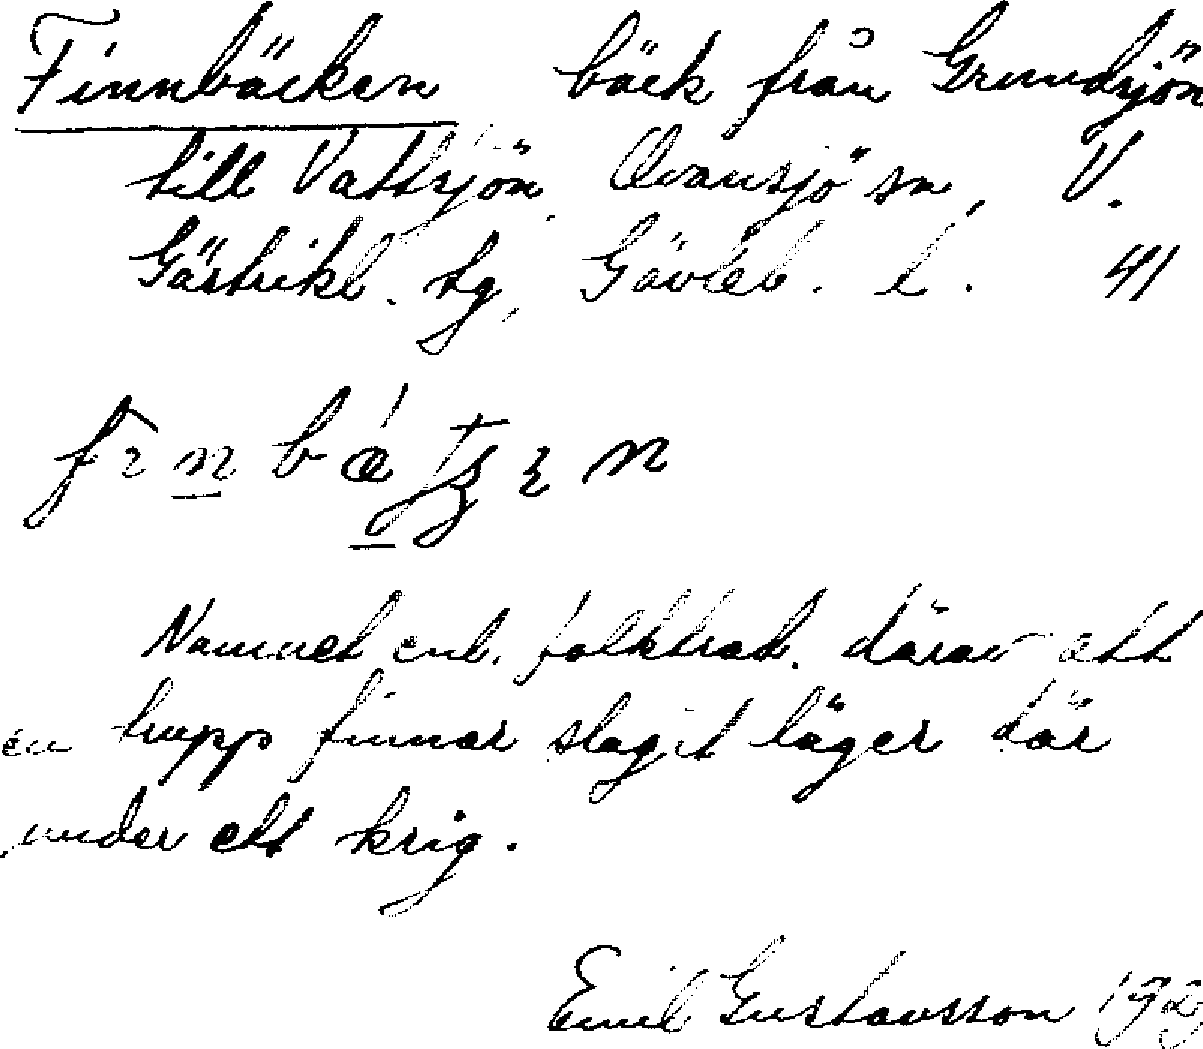 Finnbäcken bäck från Grundsjön
till Vattsjön, Ovansjö sn, V.
Gästrikl. tg, Gävleb. l. 41
Namnet enl. folktrad. därav att
en trupp finnar slagit läger där
under ett krig.
Emil Gustavsson